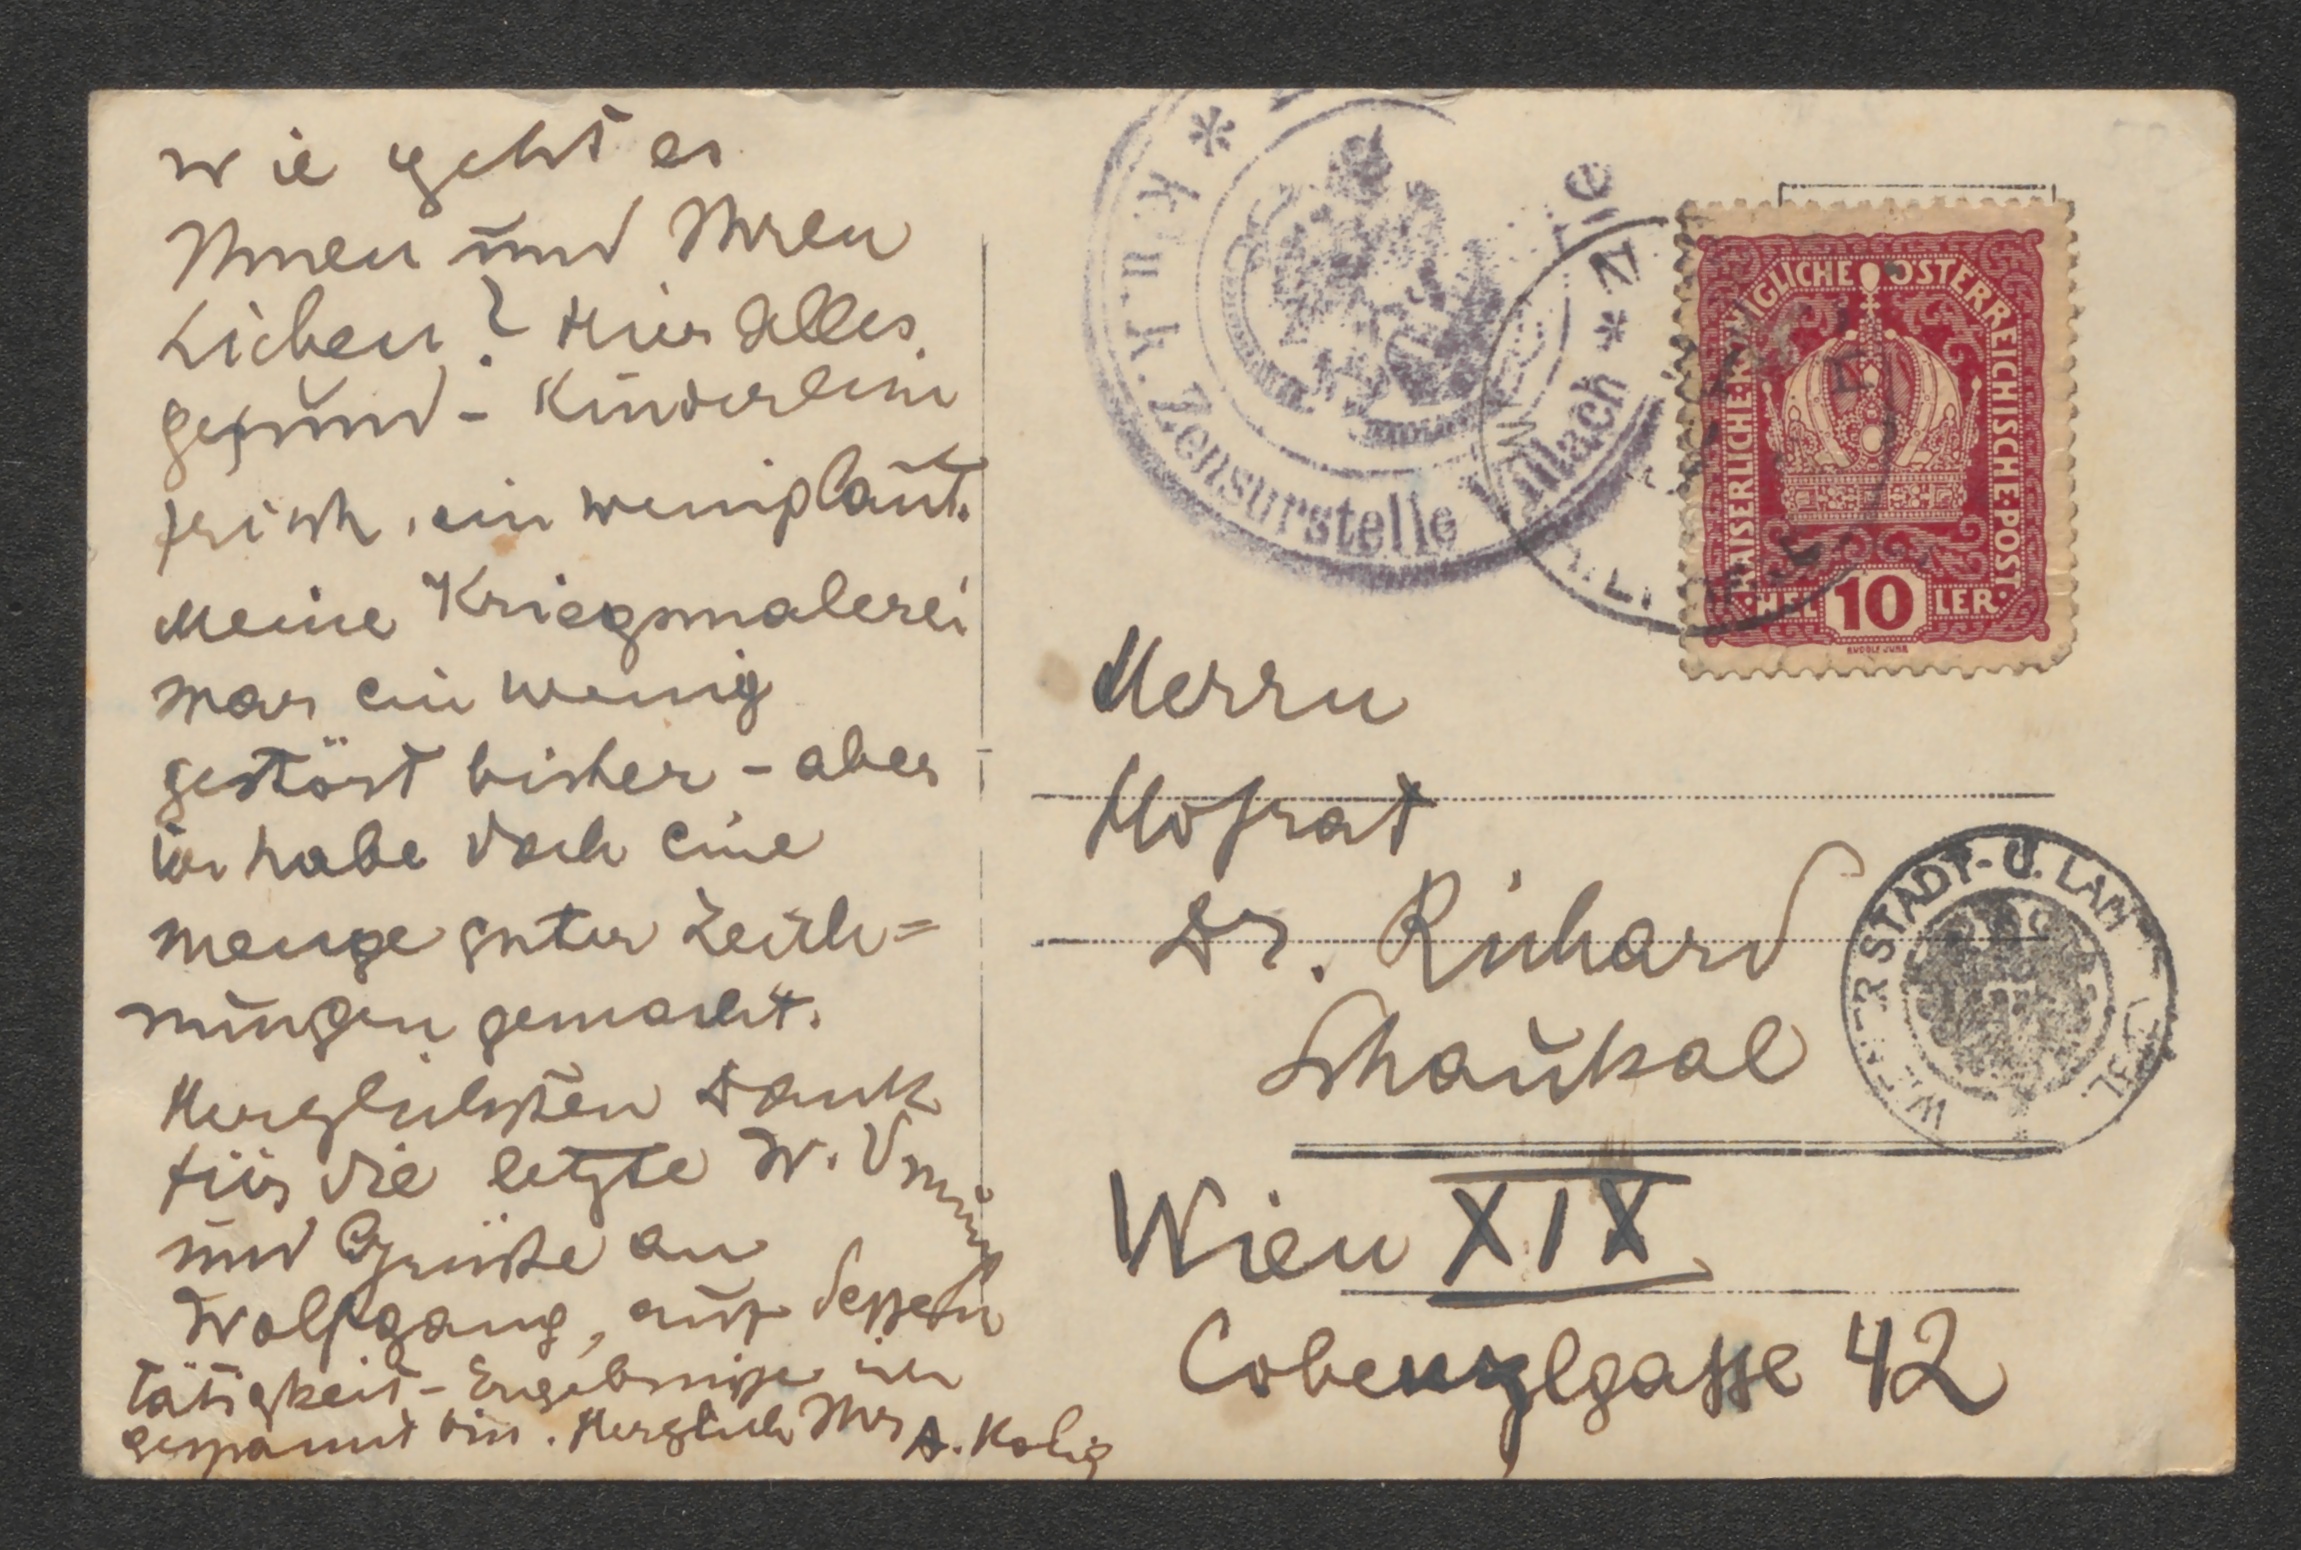 Wie geht es
Ihnen und Ihren
Lieben? Hier Alles
gesund – Kinderlein
frisch, ein wenig laut.
Meine Kriegsmalerei
war ein wenig
gestört bisher – aber
ich habe doch eine
Menge guter Zeich=
nungen gemacht.
Herzlichsten Dank
für die letzte W.
und Grüße an
Wolfgang, auf dessen
Tätigkeit-Ergebnisse ich
gespannt bin. Herzlich Ihr A. Kolig
* k. u. k. Zensurstelle Villach *
KAISERLICHE·KÖNIGLICHE ÖSTERREICHISCHE·POST·
·HEL 10 LER·
RUDOLF JUNK
Herrn
Hofrat
Dr. Richard
Schaukal
WIENER STADT- U. LAN
Wien XIX
Cobenzlgasse 42